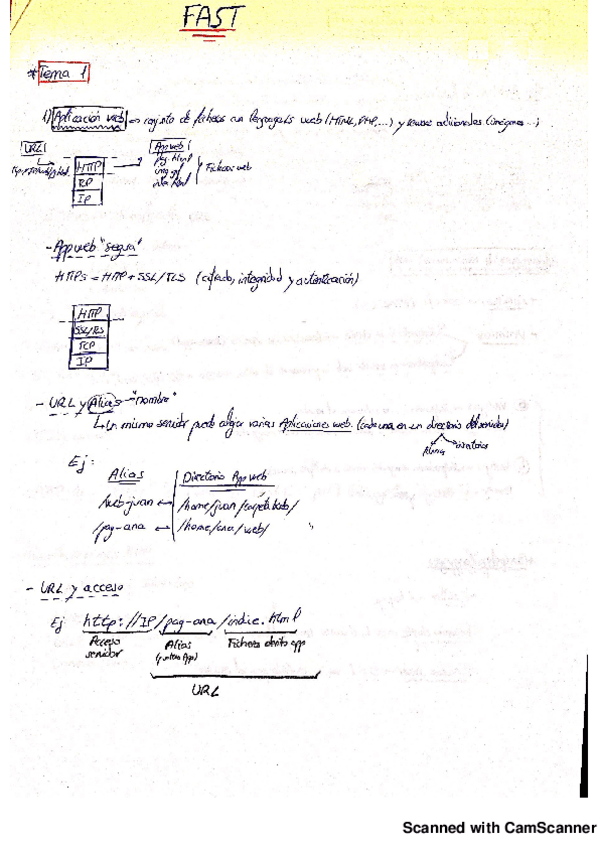 FAST
* Tema 1
1) Aplicación web → conjunto de ficheros con lenguajes web (HTML, PHP, ...) y recursos adicionales (imágenes ...)
URL
App web
HTTP
TCP
IP
pag.html
img.gif
Ficheros web
- App web "segura"
HTTPs = HTTP + SSL/TLS (cifrado, integridad y autenticación)
HTTP
SSL/TLS
TCP
IP
- URL y Alias → "nombre"
↳ Un mismo servidor puede alojar varias Aplicaciones web. (cada una en un directorio del servidor)
Alias directorios
Ej:
Alias Directorio App web
/web-juan ↔ /home/juan/carpeta/web/
/pag-ana ↔ /home/ana/web/
- URL y acceso
Ej http://IP/pag-ana/indic.html
Acceso servidor
Alias
Fichero dentro app
URL
Scanned with CamScanner